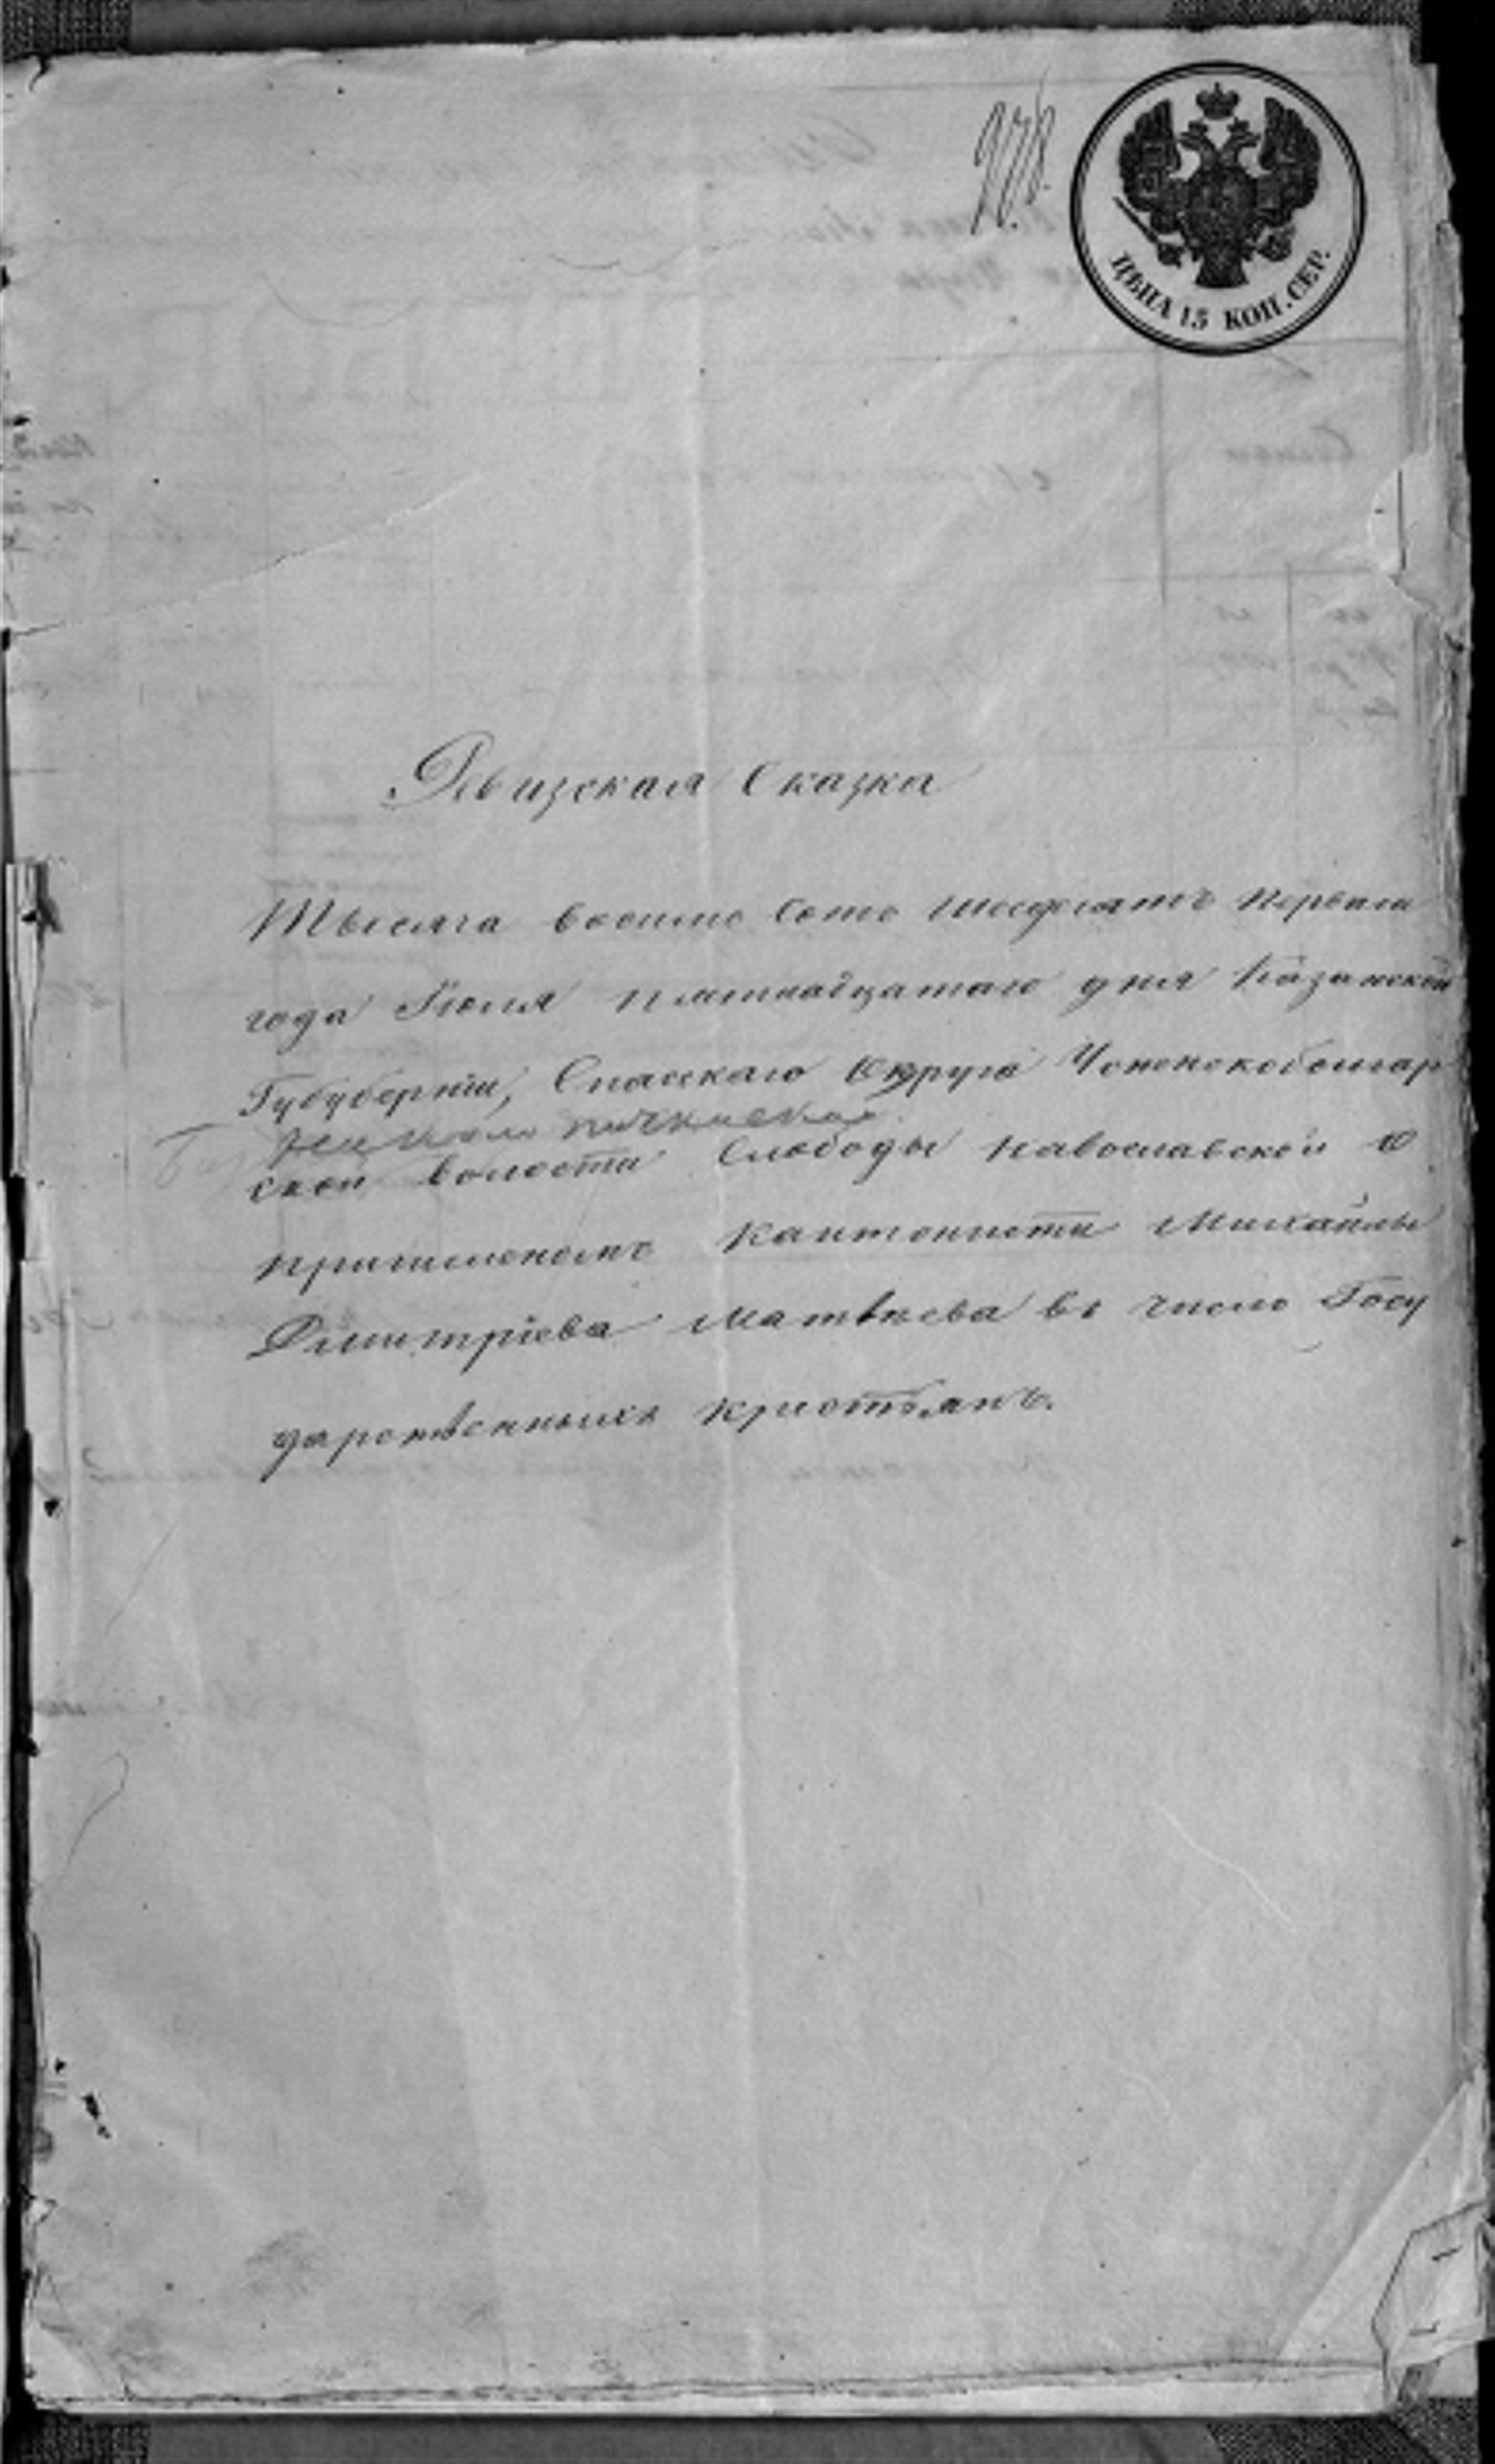 978.
ЦѢНА 15 КОП. СЕР.
Ревизская Сказка
Тысяча восимь сотъ шесдесятъ перваго
года Іюля пятнадцатаго дня Казанской
Губуберніи, Спасскаго Округа
ской волости Слободы О
причисленомъ Кантонисти Михайлы
Димитріева Матвѣева въ число Госу
дарствѣнныхъ крестьянъ.